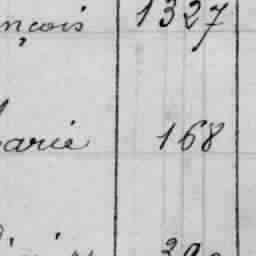 nçois 1327
arie 168